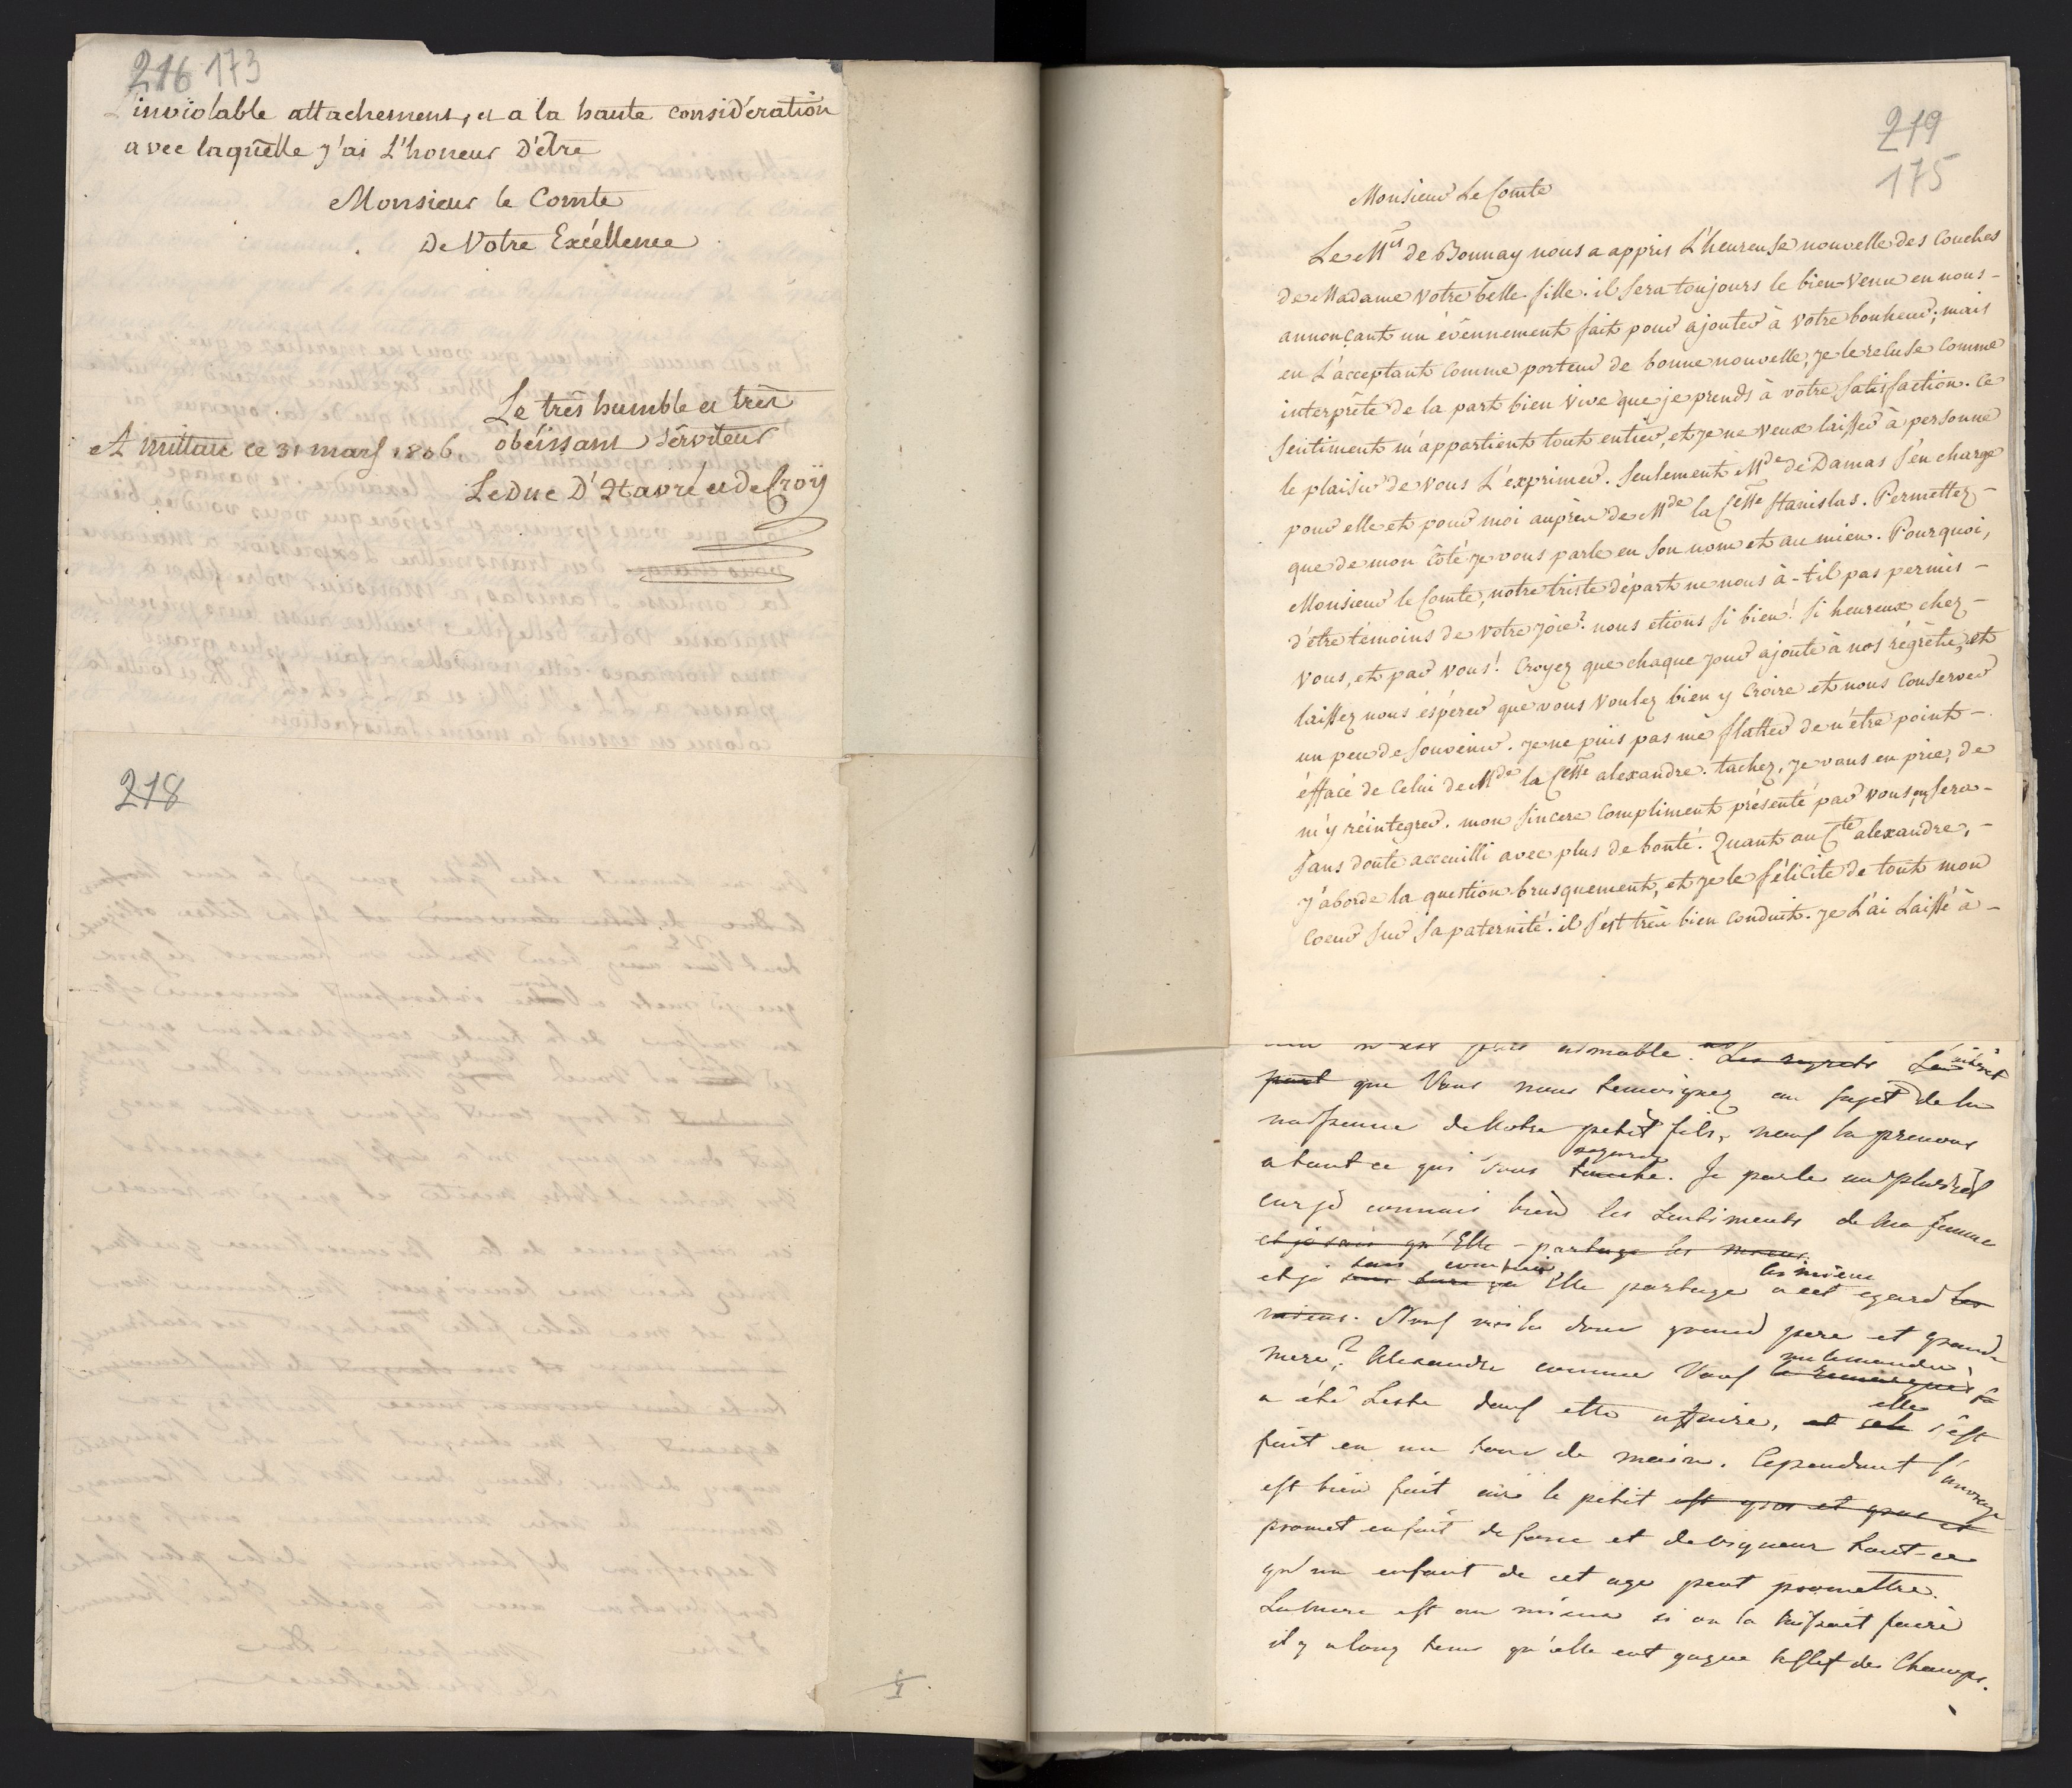 216 173
L'inviolable attachement, et a la haute considération
avec laquelle j'ai L'honeur D'être
Monsieur le Comte
De Votre Excéllence
Le très humble et très
obéissant Sérviteur
A mittau ce 31 mars 1806
Le Duc D'Havré et de Croÿ
218
219
175
Monsieur Le Comte
Le Mis de Bonnay nous a appris L'heureuse nouvelle des Couches
de Madame Votre bélle fille. il sera toujours le bien-Venu en nous-
annonçant un évênnement fait pour ajouter à Votre bonheur; mais
en L'acceptant Comme porteur de bonne nouvelle, je le recuse Comme
interprête de la part bien vive que je prends à votre satisfaction. Ce
Sentiment m'appartient tout entier, et je ne veux laisser à personne
le plaisir de vous L'exprimer. Seulement Mde de Damas s'en charge
pour elle et pour moi auprès de Mde la Ctesse Stanislas. Permettez-
que de mon Côté je vous parle en son nom et au mien. Pourquoi,
Monsieur le Comte, notre triste départ ne nous à-t-il pas permis-
d'être témoins de Votre joie? nous etions si bien! si heureux chez-
Vous, et par vous! Croyez que chaque jour ajoute à nos régrèts, et
laissez nous éspérer que vous voulez bien y Croire et nous Conserver
un peu de Souvenir. je ne puis pas me flatter de n'être point-
éffacé de Celui de Mde la Ctesse alexandre. tachez, je vous en prie, de
m'y réintegrer. mon sincere Compliment présenté par vous, en sera-
sans doute accueilli avec plus de bonté. Quant au Cte alexandre,-
j'aborde la question brusquement, et je le félicite de tout mon
Coeur sur sa paternité. il s'est très bien Conduit. je L'ai Laissé à-
aimable. Les regrets L'interet
part que Vous nous temoignez au sujet de la
naissance de Notre petit fils, nous la prenons
a tout ce qui Vous touche. Je parle au pluriel
regarde
car je connais bien les Sentiments de ma femme
et je sais qu'Elle partage les miens
et je Elle partage a cet egard les
les miens
miens. Nous voila donc grand pere et grand
mere? Alexandre comme Vous le remarquez
a été Leste dans cette affaire, et cela s'est
elle
fait en un tour de main. Cependant l'ouvrage
est bien fait car le petit est gros et gras et
promet en fait de force et de vigueur tout-ce
qu'un enfant de cet age peut promettre.
La mere est au mieux si on la laissait faire
il y a long tems qu'elle eut gagné la clef des Champs.